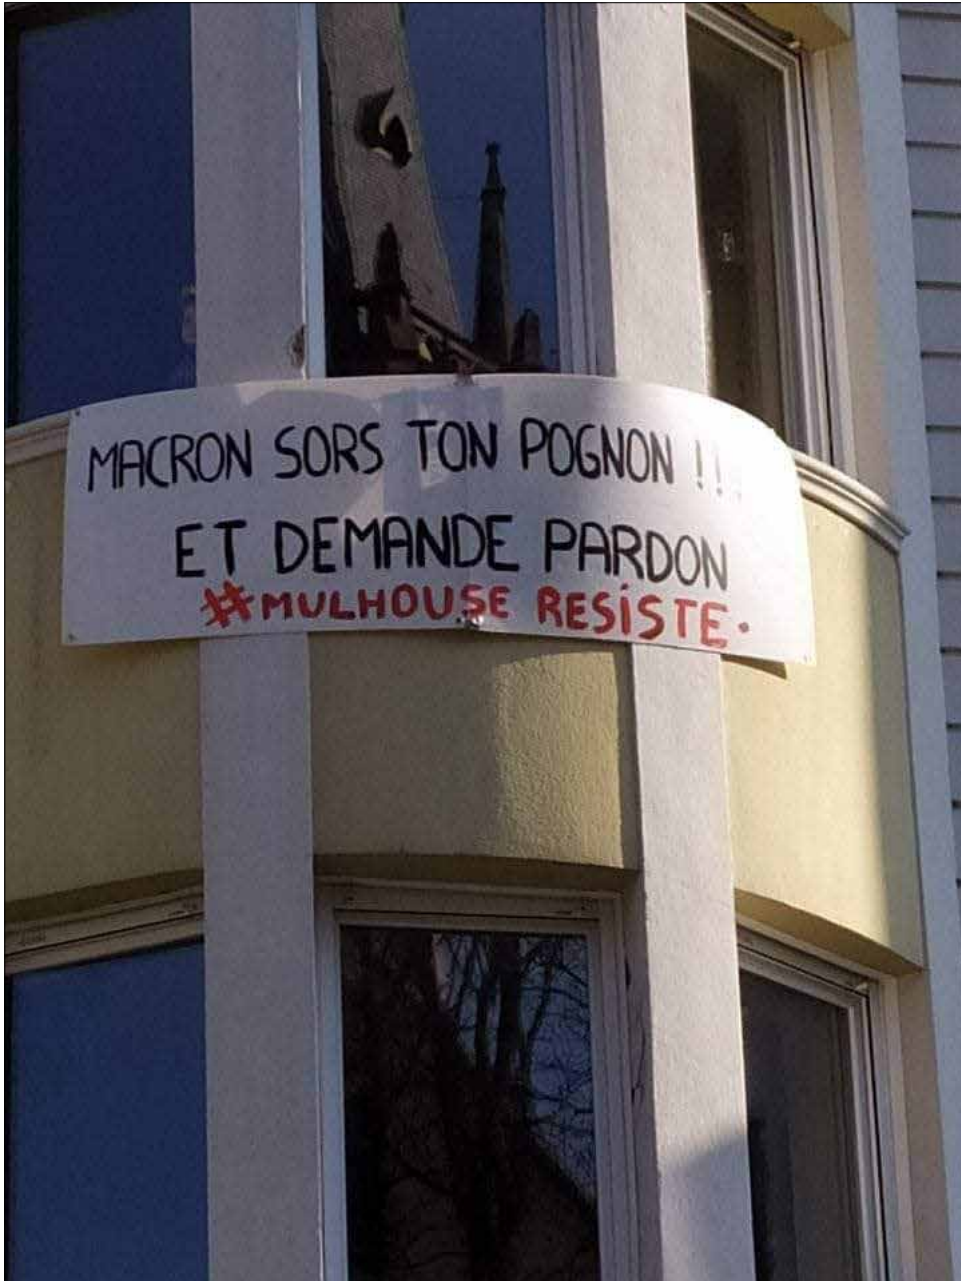 MACRON SORS TON POGNON !!!
ET DEMANDE PARDON
#MULHOUSE RESiSTE.